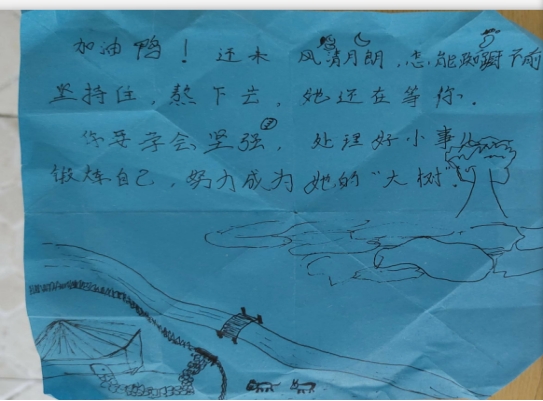 加油鸭！还未风清月朗，怎能踟蹰不前
坚持住，熬下去，她还在等你．
你要学会坚强，处理好小事，
锻炼自己，努力成为她的“大树”．